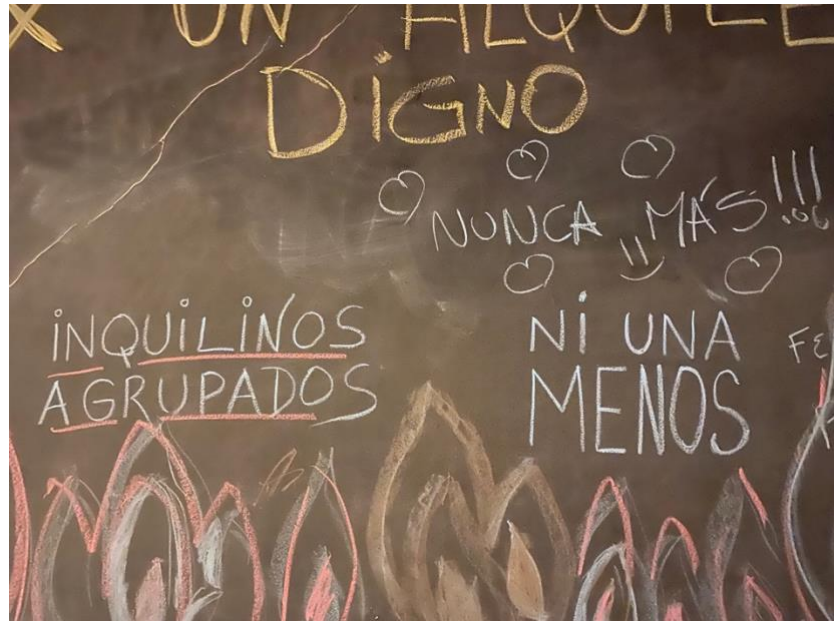 X UN ALQUILE
DiGNO
NUNCA MÁS!!!
iNQUiLiNOS
AGRUPADOS
Ni UNA
MENOS
FE